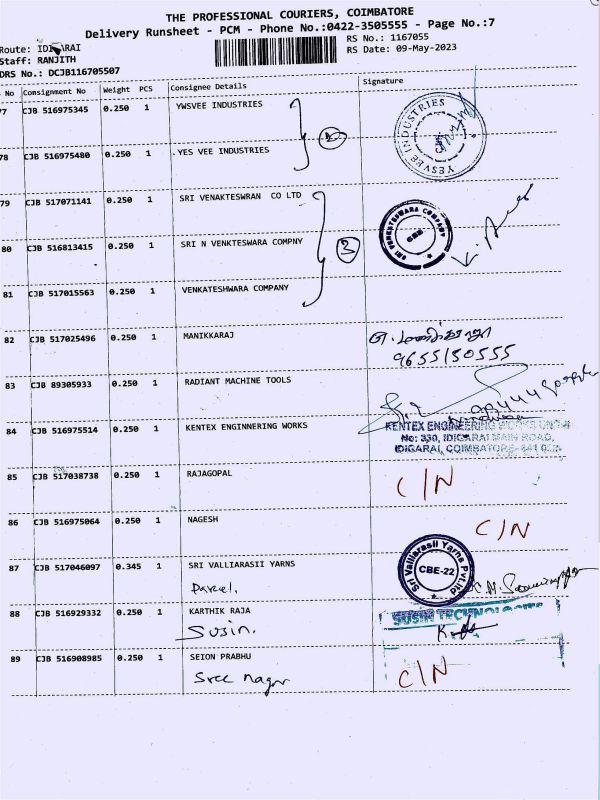 THE PROFESSIONAL COURIERS, COIMBATORE
Delivery Runsheet - PCM - Phone No.:0422-3505555 - Page No.:7
Route: IDIGARAI
RS No.: 1167055
Staff: RANJITH
RS Date: 09-May-2023
DRS No.: DCJB116705507
No Consignment No Weight PCS Consignee Details Signature
77 CJB 516975345 0.250 1 YWSVEE INDUSTRIES
YESVEE INDUSTRIES
2
78 CJB 516975480 0.250 1 YES VEE INDUSTRIES
79 CJB 517071141 0.250 1 SRI VENAKTESWRAN CO LTD
SRI VENKATESWARA COMPANY
CBE
80 CJB 516813415 0.250 1 SRI N VENKTESWARA COMPNY
3
81 CJB 517015563 0.250 1 VENKATESHWARA COMPANY
82 CJB 517025496 0.250 1 MANIKKARAJ
9655150555
83 CJB 89305933 0.250 1 RADIANT MACHINE TOOLS
84 CJB 516975514 0.250 1 KENTEX ENGINNERING WORKS
KENTEX ENGINEERING WORKS
No: 330, IDIGARAI MAIN ROAD,
IDIGARAI, COIMBATORE- 641
85 CJB 517038738 0.250 1 RAJAGOPAL C/N
86 CJB 516975064 0.250 1 NAGESH C/N
87 CJB 517046097 0.345 1 SRI VALLIARASII YARNS
Parcel.
Sri Valliarasii Yarns Pvt Ltd
CBE-22
88 CJB 516929332 0.250 1 KARTHIK RAJA
Susin.
SUSIN TECHNOLOGIES
89 CJB 516908985 0.250 1 SEION PRABHU C/N
Sree nagar